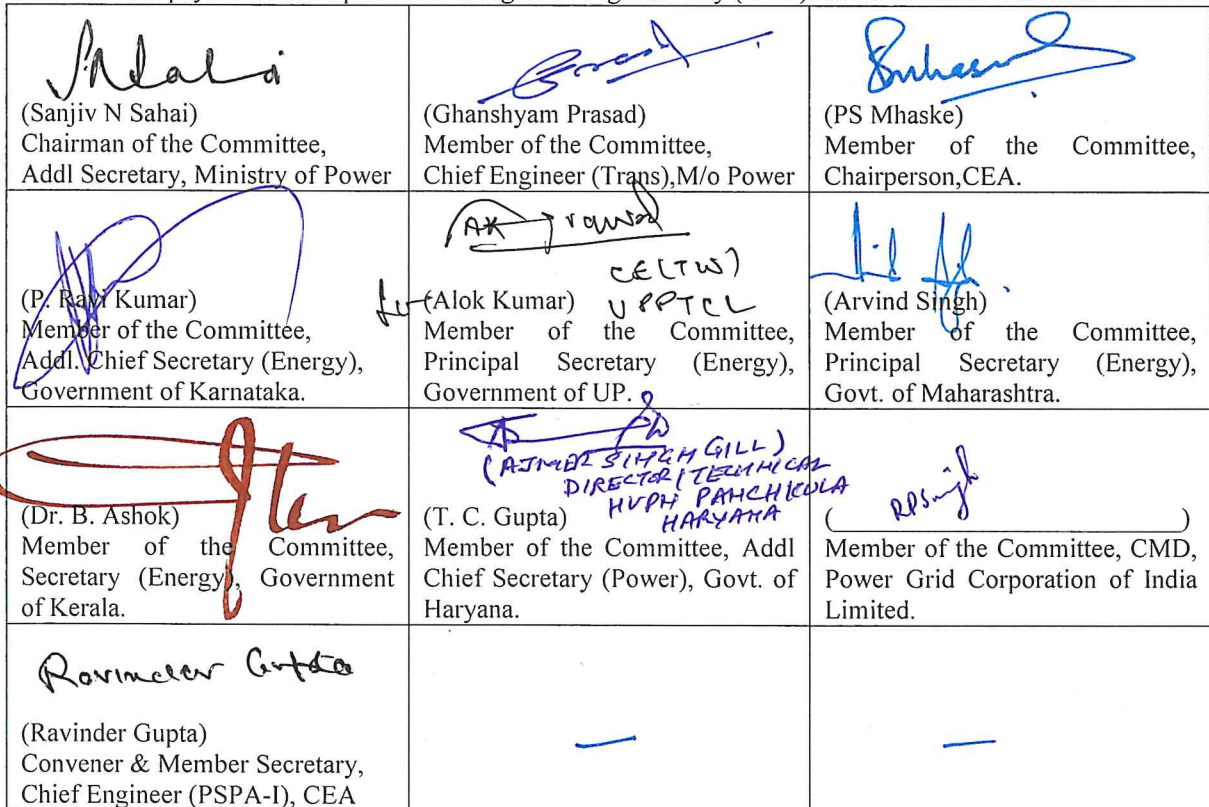 (Sanjiv N Sahai)
Chairman of the Committee,
Addl Secretary, Ministry of Power
(Ghanshyam Prasad)
Member of the Committee,
Chief Engineer (Trans),M/o Power
(PS Mhaske)
Member of the Committee,
Chairperson,CEA.
(P. Ravi Kumar)
Member of the Committee,
Addl. Chief Secretary (Energy),
Government of Karnataka.
CE(TW)
UPPTCL
(Alok Kumar)
Member of the Committee,
Principal Secretary (Energy),
Government of UP.
(Arvind Singh)
Member of the Committee,
Principal Secretary (Energy),
Govt. of Maharashtra.
(Dr. B. Ashok)
Member of the Committee,
Secretary (Energy), Government
of Kerala.
(AJMER SINGH GILL)
DIRECTOR/TECHNICAL
HVPN PANCHKULA
HARYANA
(T. C. Gupta)
Member of the Committee, Addl
Chief Secretary (Power), Govt. of
Haryana.
RPSingh
(____________________)
Member of the Committee, CMD,
Power Grid Corporation of India
Limited.
Ravinder Gupta
(Ravinder Gupta)
Convener & Member Secretary,
Chief Engineer (PSPA-I), CEA